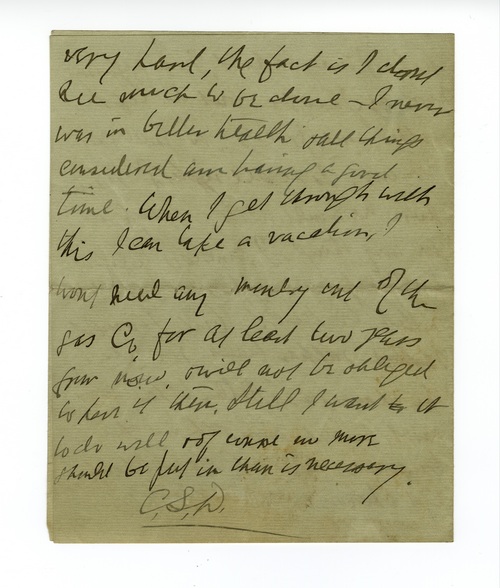 very hard, the fact is I dont
see much to be done – I never
was in better health & all things
considered am having a good
time. When I get through with
this I can take a vacation, I
wont need any money out of the
gas Co, for at least two years
from now, & will not be obliged
to have it then, Still I want it
to do well & of course no more
should be put in than is necessary.
C.S.D.